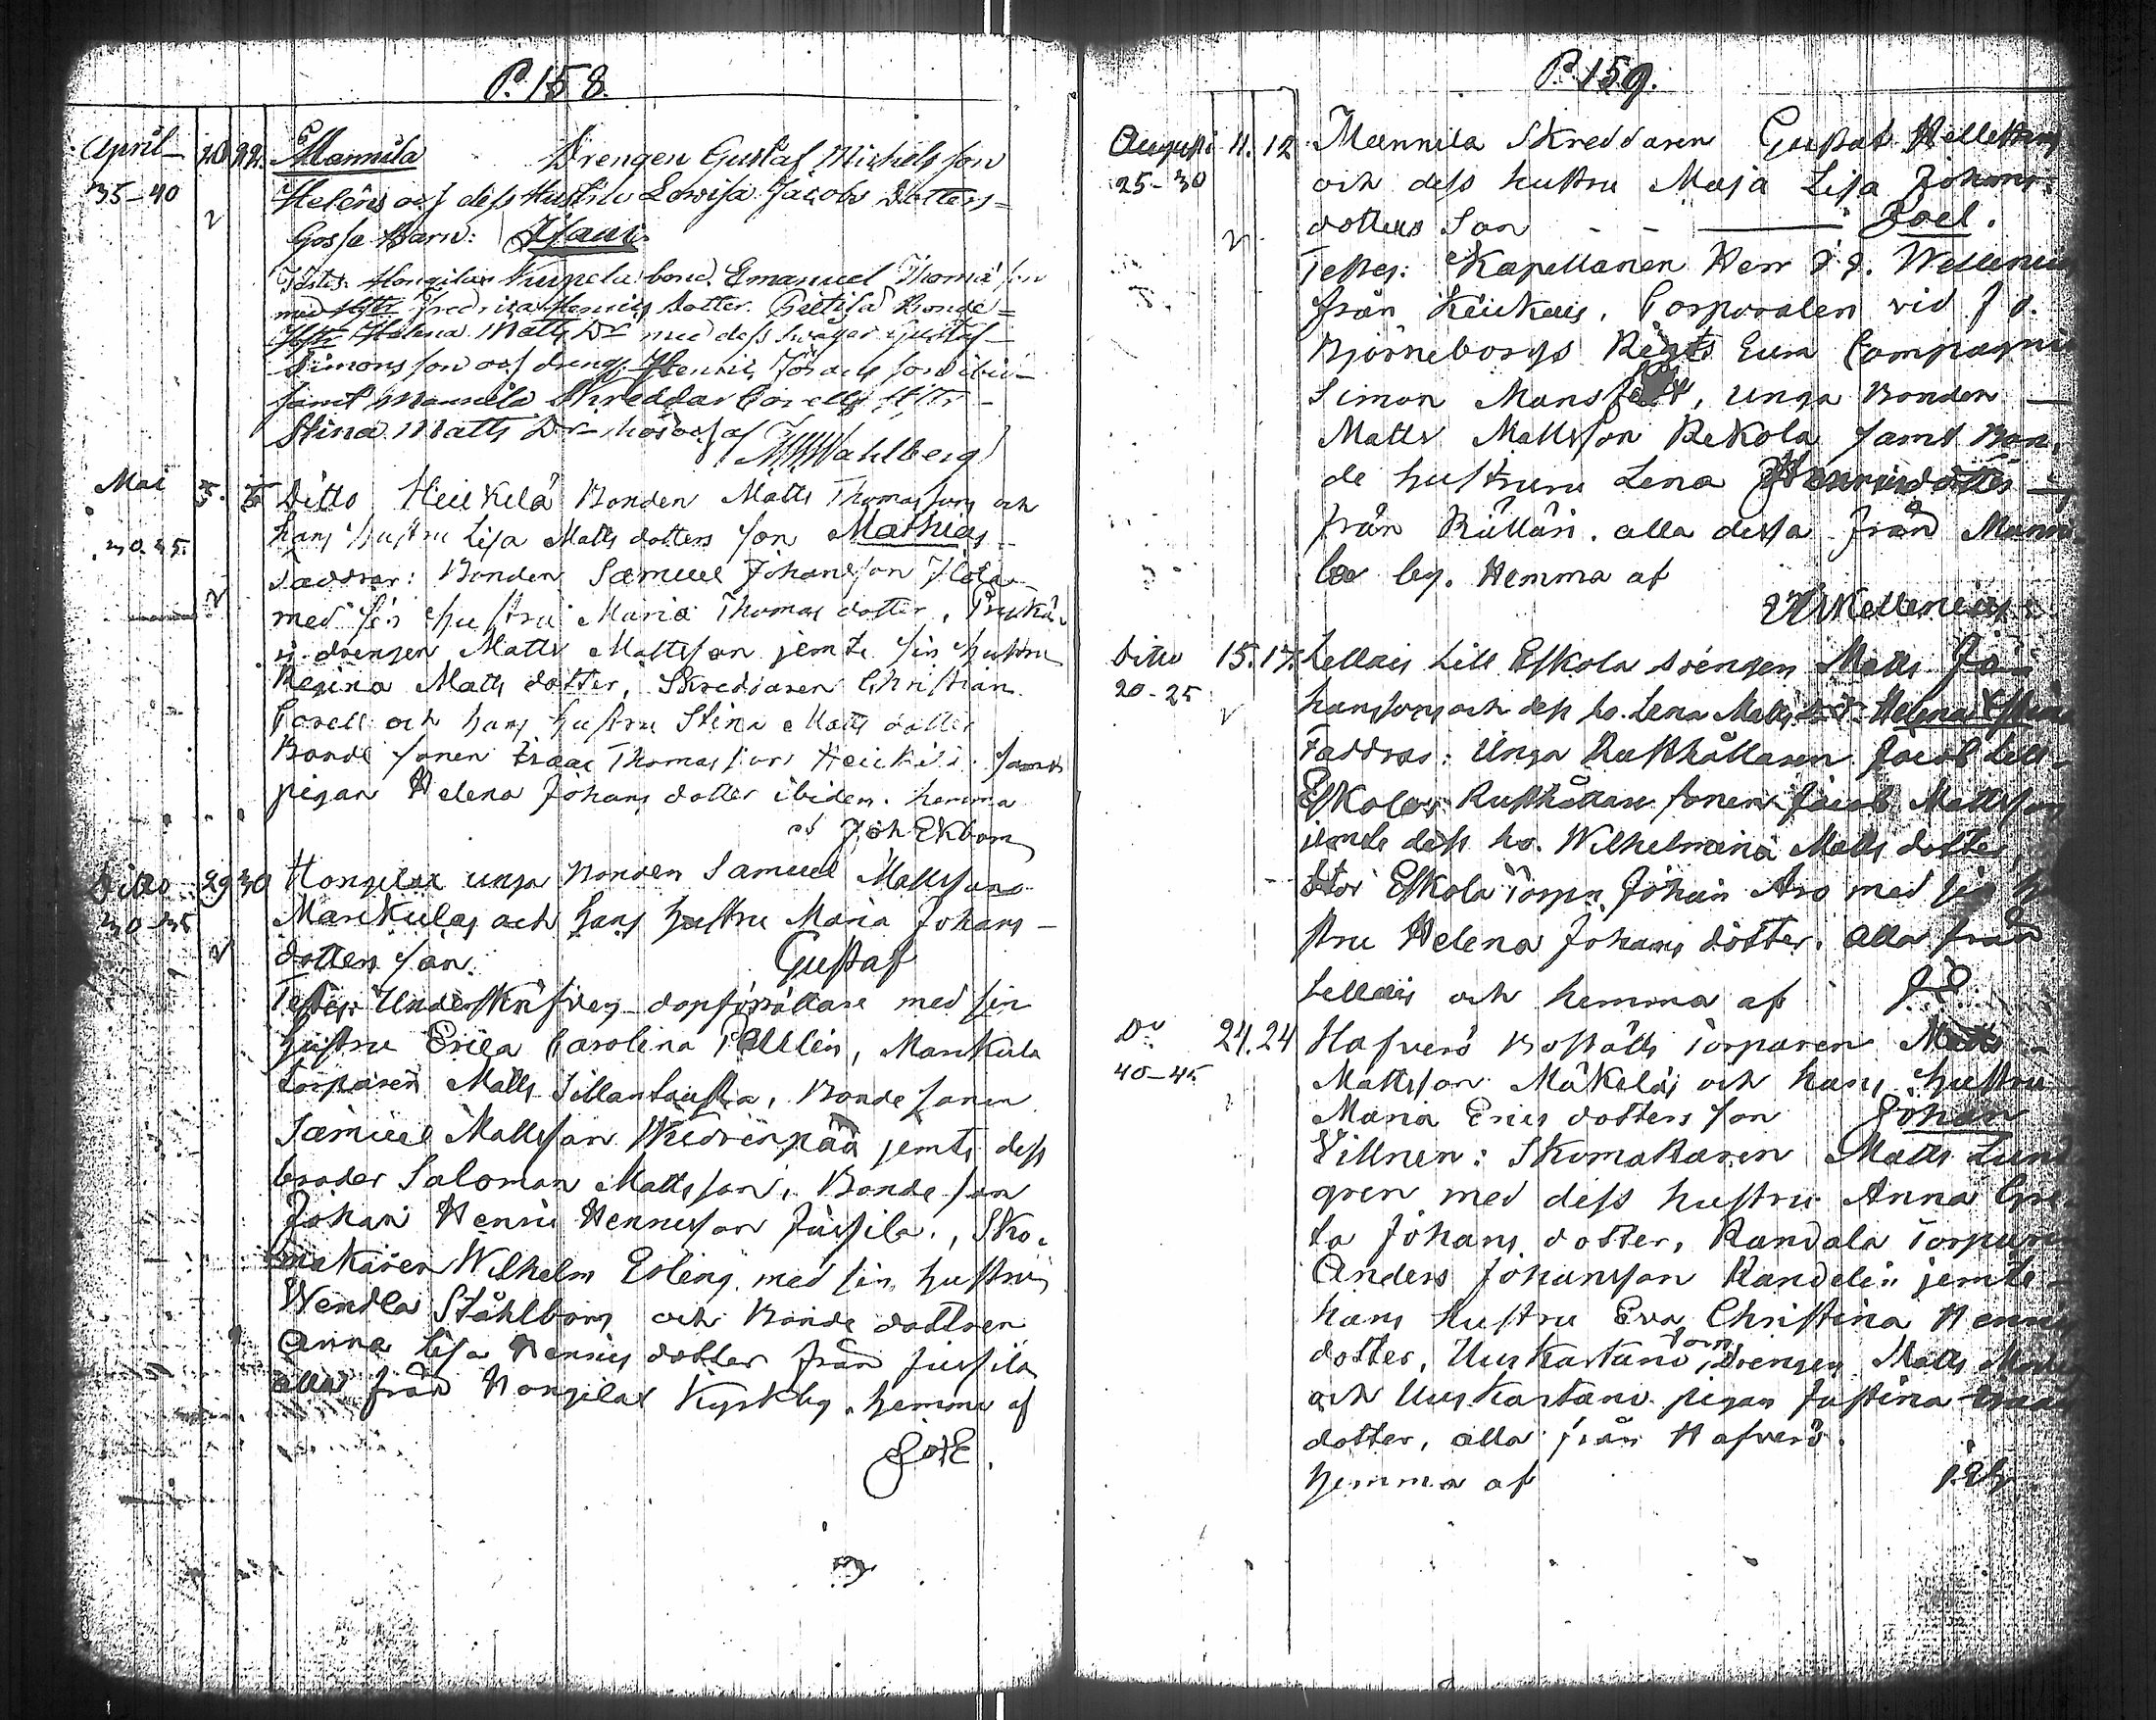 P. 158.
April 20 22. Mannila Drengen Gustaf Michelsson
35-40 Heléns och dess Hustru Lovisa Jacobs Dotters
Gosse Barn: Isaac.
Testes: Hongilax bond. Emanuel Thomæ son
med Hstr Fredrica Henrics dotter. Bonde
Hstr Helena Matts Dr med dess Swåger Gustaf
Simonsson och dreng. Henric
samt Mannila Skreddar Corells Hstr
Stina Matts Dr af
Wahlberg
Mai 5. 5 Ditto Heickelä Bonden Matts Thomassons och
30-35. hans hustru Lisa Matts dotters son Mathias
Faddrar: Bonden Samuel Johansson
med sin hustru Maria Thomas dotter,
drengen Matts Mattsson jemte sin hustru
Regina Matts dotter, Skreddaren Christian
Corell och hans hustru Stina Matts dotter
Bonde sonen Isaac Thomasson Heickilä samt
pigan Helena Johans dotter ibidem. hemma
af Joh Ekbom
Ditto 29 30 Hongilax unga Bonden Samuel Mattssons
30-35 Markulas och hans hustru Maria Johans
dotters son. Gustaf
Testes: Underskrifven dopförrättare med sin
hustru Erica Carolina, Markula
torparen Matts Sillantausta, Bonde sonen
Samuel Mattsson jemte dess
broder Salomon Mattsson, Bonde son
Johan Henric Henricsson Jussila, Sko-
makaren Wilhelm Esling med sin hustru
Wendla Ståhlbom och Bonde dottren
Anna Lisa Henrics dotter från Jussila
alla från Hongilax Kyrkby. hemma af
JohE.
P. 159.
Augusti 11. 12 Mannila Skreddaren Gustaf Hellsten
25-30 och dess hustru Maja Lisa Johans
dotters Son Joel.
Testes: Kapellanen Herr Wellenius
från Keikois, Corporalen vid
Björneborgs Regts Eura Compagnie
Simon, unga Bonden
Matts Mattsson Rekola samt Bon-
de hustrun Lena Henricsdotter
från. alla dessa från Manni-
la by. Hemma af
Wellenius
Ditto 15. 17. Lellais Lill Eskola drengen Matts Jo-
20-25 hanssons och dess ho. Lena Matts dr Helena
Faddrar: Unga Rusthållaren Jacob Lill
Eskola, Rusthållare sonen Jacob Mattsson
jemte dess ho. Wilhelmina Matts dotter,
Stor Eskola Torp. Johan Aro med sin hu-
stru Helena Johans dotter. alla från
Lellais och hemma af JE
Do 24. 24 Hafverö Boställs Torparen Matts
40-45 Mattsson Mäkeläs och hans hustru
Maria Erics dotters son Johan
Vittnen: Skomakaren Matts Lund
gren med dess hustru Anna Gre-
ta Johans dotter, Randala Torparen
Anders Johansson Randelin jemte
hans hustru Eva Christina Henrics
dotter, Uuskartano torp Drengen Matts
och Uuskartano pigan Justina
dotter, alla från Hafverö.
hemma af